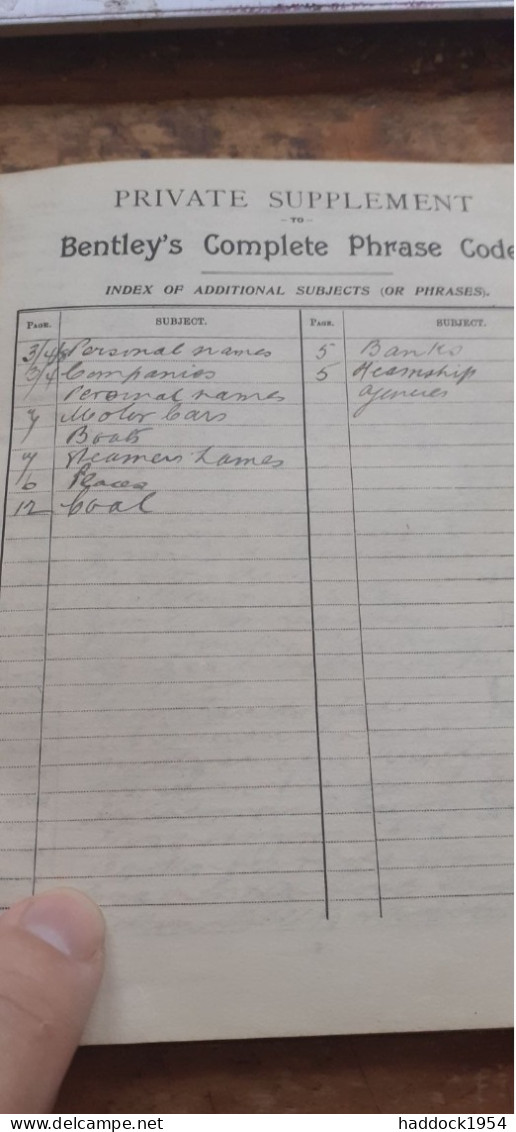 PRIVATE SUPPLEMENT
- TO -
Bentley's Complete Phrase Code
INDEX OF ADDITIONAL SUBJECTS (OR PHRASES).
PAGE. SUBJECT. PAGE. SUBJECT.
3/4/8 Personal names 5 Banks
3/4 Companies 5 Steamship
Personal names agencies
7 Motor Cars
7 Boats
7 Steamers names
6 Places
12 Coal
delcampe.net
haddock1954